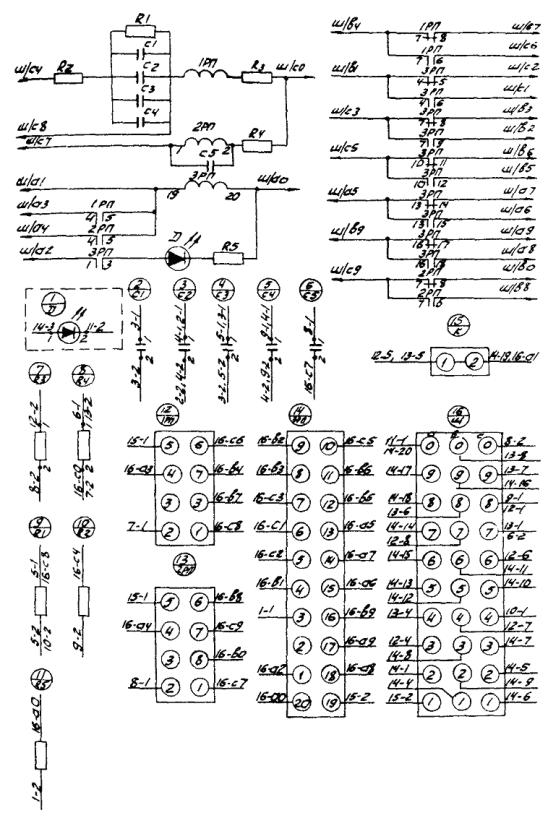 R1
C1
ш/с4
R2
C2
1РП
R3
ш/с0
C3
C4
ш/с8
ш/с7
1
2РП
2
R4
C5
ш/а1
3РП
ш/а0
19
20
ш/а3
1РП
4
5
ш/а4
2РП
4
5
ш/а2
3РП
1
3
Д
R5
ш/в4
1РП
ш/в7
7
8
1РП
ш/с6
7
6
ш/в1
3РП
ш/с2
4
5
3РП
ш/с1
4
6
ш/с3
3РП
ш/в3
7
8
3РП
ш/в2
7
9
ш/с5
3РП
ш/в6
10
11
3РП
ш/в5
10
12
ш/а5
3РП
ш/а7
13
14
3РП
ш/а6
13
15
ш/в9
3РП
ш/а9
16
17
3РП
ш/а8
16
18
ш/с9
2РП
ш/в0
7
8
2РП
ш/в8
7
6
1
Д
14-3
11-2
1
2
2
C1
3-1
1
2
3-2
3
C2
4-1,6-1
1
2
2-2,4-2
4
C3
5-1,3-1
1
2
3-2,5-2
5
C4
9-1,4-1
1
2
4-2,9-2
6
C5
8-1
1
2
16-с7
15
К
12-5, 13-5
1
2
14-19,16-а1
7
R3
12-2
1
2
8-2
8
R4
6-1
13-2
1
2
16-с0
7-2
9
R1
5-1
16-с8
5-2
10-2
10
R2
16-с4
9-2
11
R5
16-а0
1-2
12
1П
15-1
5
6
16-с6
16-а3
4
7
16-в4
3
3
16-в7
7-1
2
1
16-с8
13
2П
15-1
5
6
16-в8
16-а4
4
7
16-с9
3
8
16-в0
8-1
2
1
16-с7
14
16-в2
9
10
16-с5
16-в3
8
11
16-в6
16-с3
7
12
16-в5
16-с1
6
13
16-а5
16-с2
5
14
16-а7
16-в1
4
15
16-а6
1-1
3
16
16-в9
2
17
16-а9
16-а2
1
18
16-а8
16-а0
20
19
15-2
16
Ш
а
в
с
11-1
14-20
0
0
0
8-2
13-8
14-17
9
9
9
13-7
14-16
14-18
13-6
8
8
8
9-1
12-1
14-14
12-8
7
7
7
13-1
6-2
14-15
6
6
6
12-6
14-11
14-13
14-12
5
5
5
14-10
13-4
4
4
4
10-1
12-7
12-4
14-8
3
3
3
14-7
14-1
2
2
2
14-5
14-4
14-9
15-2
1
1
1
14-6